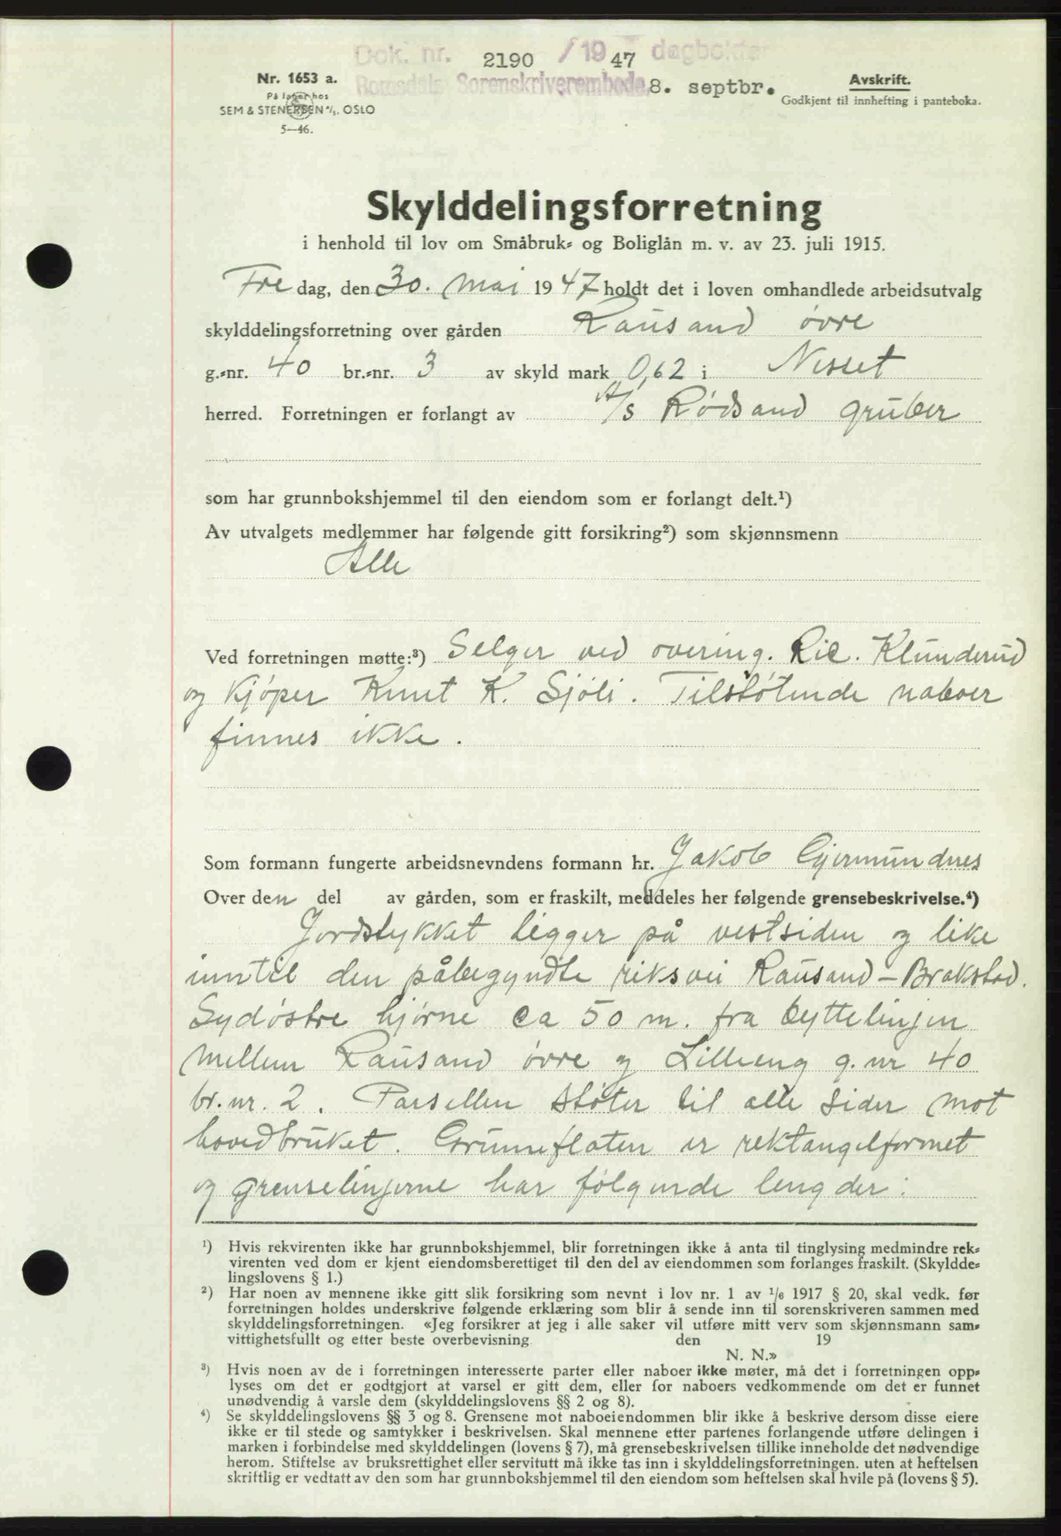 Dok. nr. 2190 /19 47 dagbokfør
Romsdals Sorenskriverembede 8. septbr.
Nr. 1653 a.
På lager hos
SEM & STENERSEN A/S. OSLO
5—46.
Avskrift.
Godkjent til innhefting i panteboka.
Skylddelingsforretning
i henhold til lov om Småbruk- og Boliglån m. v. av 23. juli 1915.
Fre dag, den 30. mai 19 47 holdt det i loven omhandlede arbeidsutvalg
skylddelingsforretning over gården Rausand øvre
g.-nr. 40 br.-nr. 3 av skyld mark 0,62 i Nesset
herred. Forretningen er forlangt av A/S Rødsand gruber
som har grunnbokshjemmel til den eiendom som er forlangt delt.¹)
Av utvalgets medlemmer har følgende gitt forsikring²) som skjønnsmenn
Alle
Ved forretningen møtte:³) Selger ved overing. Ric. Klunderud
og kjøper Knut K. Sjøli. Tilstøtende naboer
finnes ikke.
Som formann fungerte arbeidsnevndens formann hr. Jakob Gjermundnes
Over den del av gården, som er fraskilt, meddeles her følgende grensebeskrivelse.⁴)
Jordstykket ligger på vestsiden og like
inntil den påbegyndte riksvei Rausand – Brakstad.
Sydøstre hjørne ca 50 m. fra byttelinjen
mellem Rausand øvre og Lilleeng g. nr 40
br. nr. 2. Parsellen støter til alle sider mot
hovedbruket. Grunnflaten er rektangelformet
og grenselinjerne har følgende lengder:
¹) Hvis rekvirenten ikke har grunnbokshjemmel, blir forretningen ikke å anta til tinglysing medmindre rek-
virenten ved dom er kjent eiendomsberettiget til den del av eiendommen som forlanges fraskilt. (Skyldde-
lingslovens § 1.)
²) Har noen av mennene ikke gitt slik forsikring som nevnt i lov nr. 1 av 1/6 1917 § 20, skal vedk. før
forretningen holdes underskrive følgende erklæring som blir å sende inn til sorenskriveren sammen med
skylddelingsforretningen. «Jeg forsikrer at jeg i alle saker vil utføre mitt verv som skjønnsmann sam-
vittighetsfullt og etter beste overbevisning den 19
N. N.»
³) Hvis noen av de i forretningen interesserte parter eller naboer ikke møter, må det i forretningen opp-
lyses om det er godtgjort at varsel er gitt dem, eller for naboers vedkommende om det er funnet
unødvendig å varsle dem (skylddelingslovens §§ 2 og 8).
⁴) Se skylddelingslovens §§ 3 og 8. Grensene mot naboeiendommen blir ikke å beskrive dersom disse eiere
ikke er til stede og samtykker i beskrivelsen. Skal mennene etter partenes forlangende utføre delingen i
marken i forbindelse med skylddelingen (lovens § 7), må grensebeskrivelsen tillike inneholde det nødvendige
herom. Stiftelse av bruksrettighet eller servitutt må ikke tas inn i skylddelingsforretningen. uten at heftelsen
skriftlig er vedtatt av den som har grunnbokshjemmel til den eiendom som heftelsen skal hvile på (lovens § 5).